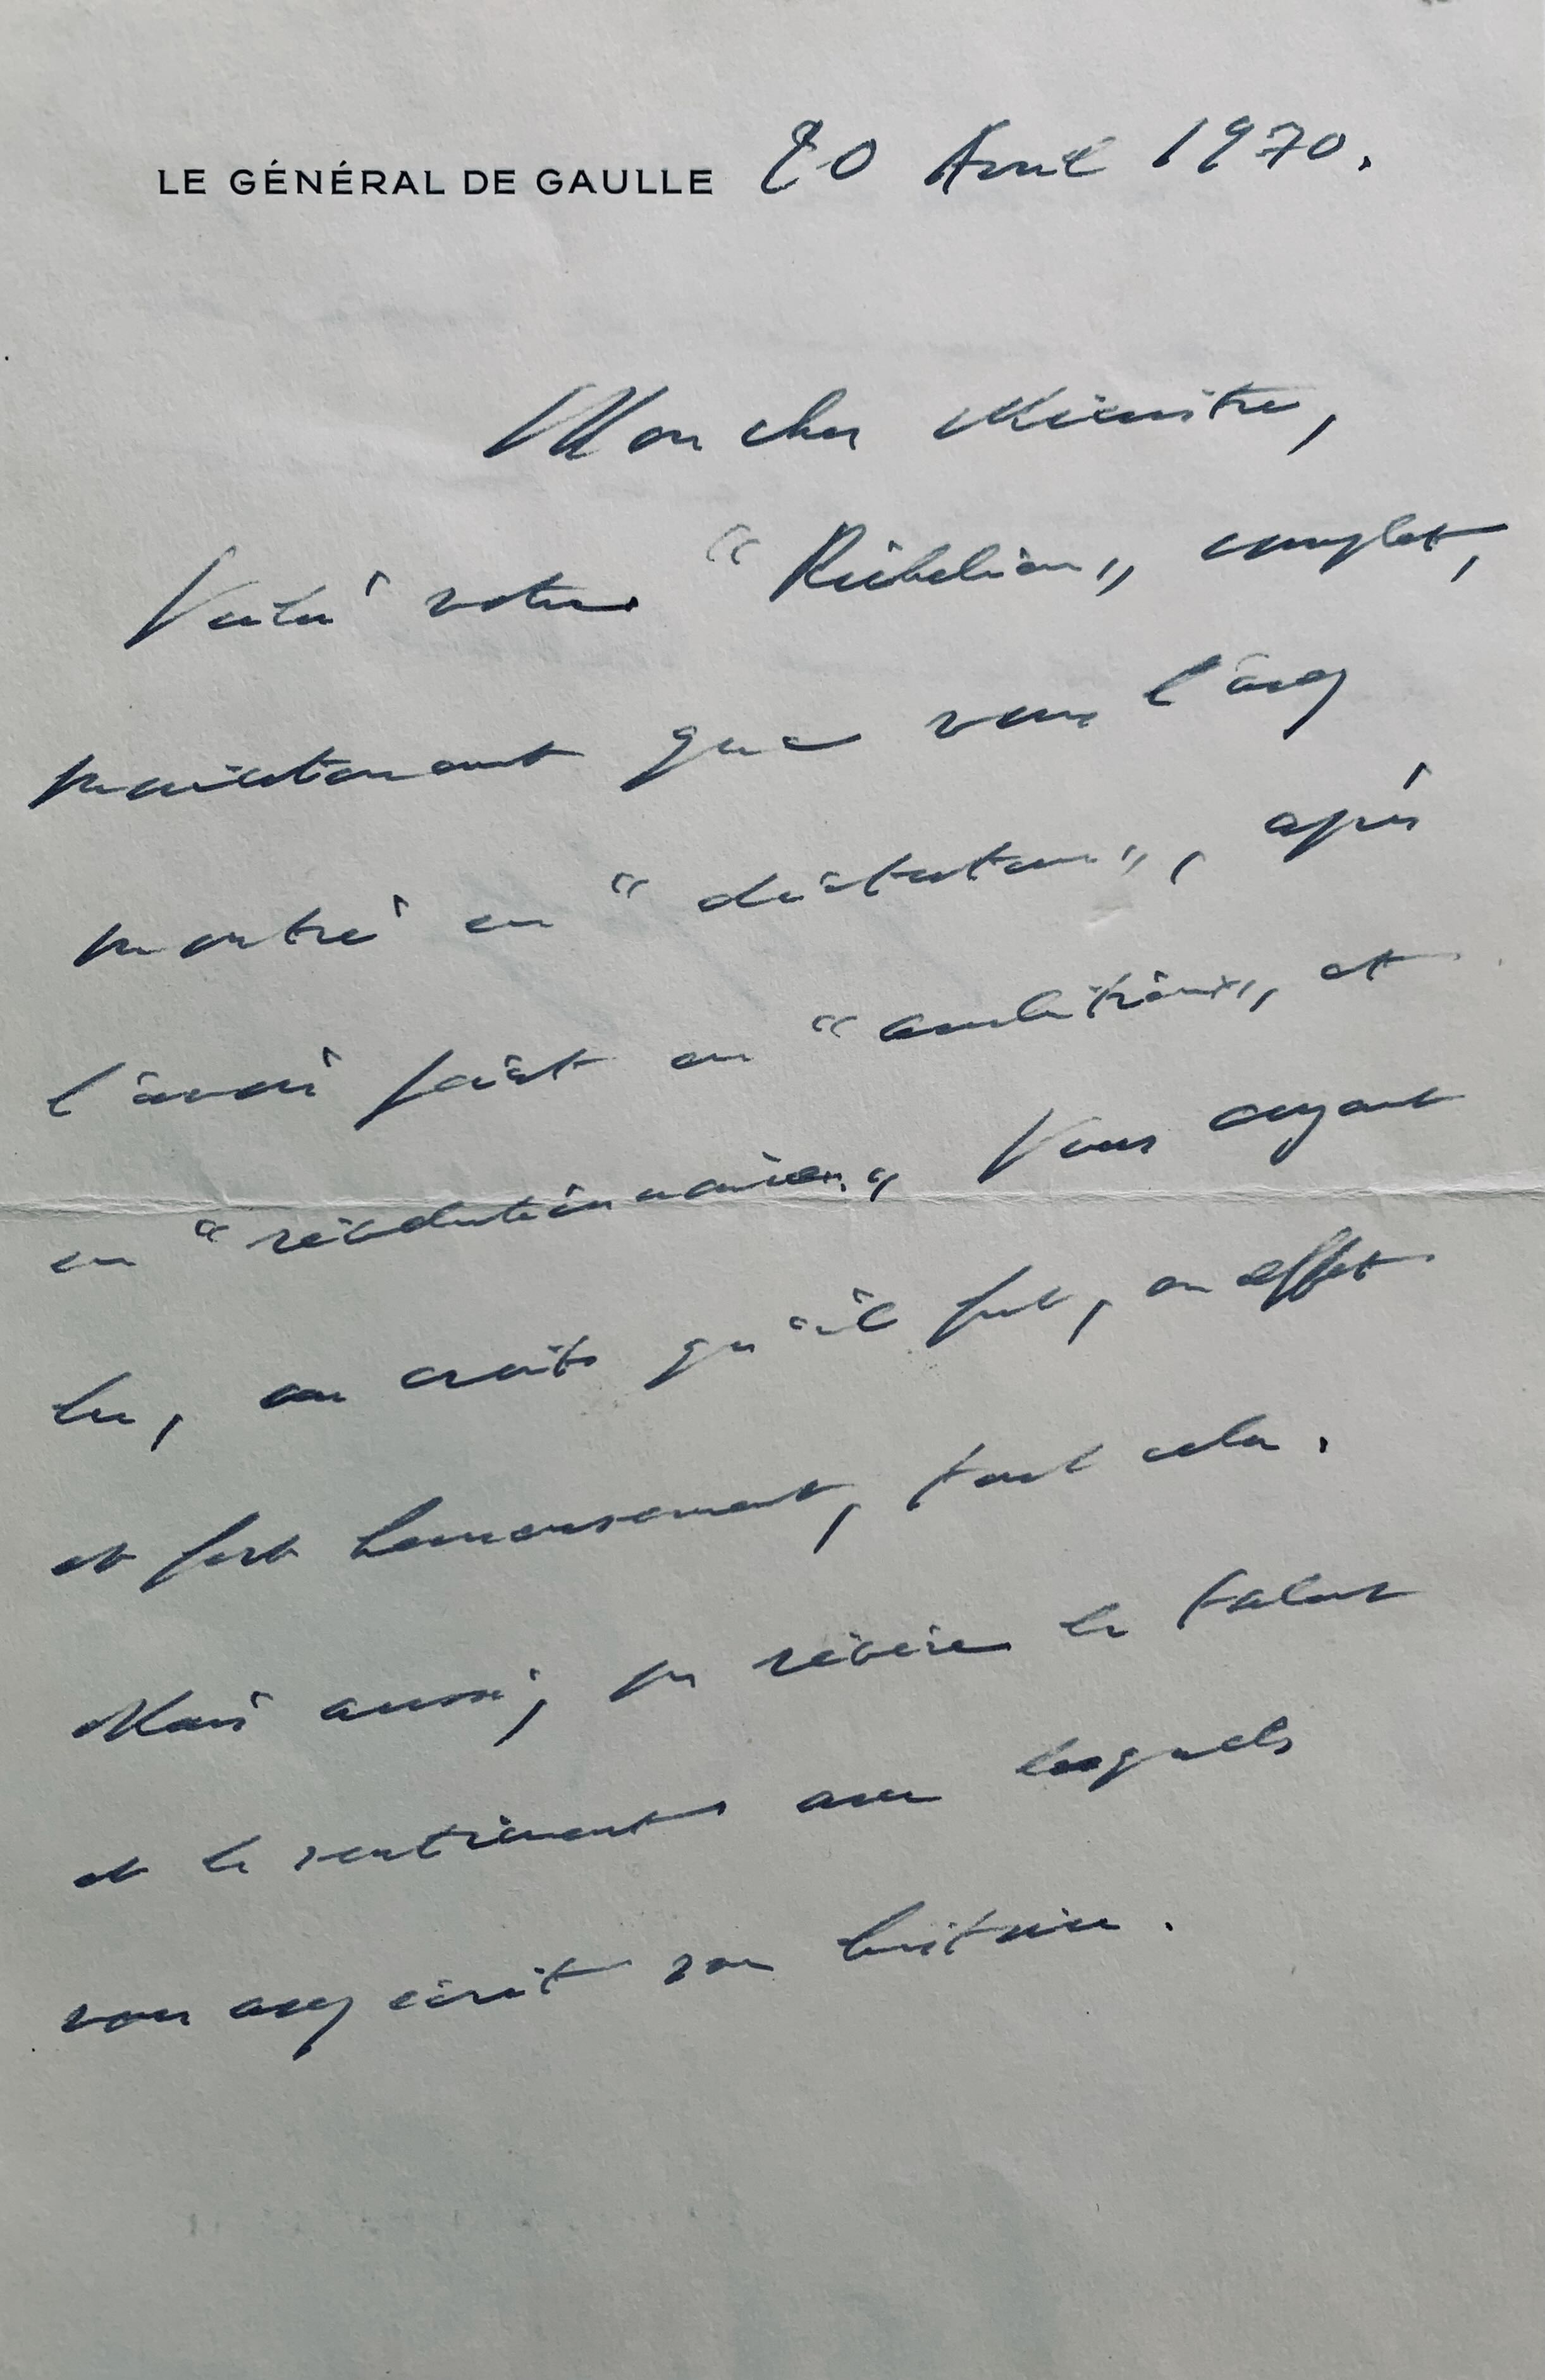 LE GÉNÉRAL DE GAULLE 20 Avril 1970.
Mon cher Ministre,
Voilà votre "Richelieu" complet,
maintenant que vous l'avez
montré en "dictateur", après
l'avoir fait en "ambitieux", et
en "révolutionnaire". Vous ayant
lu, on croit qu'il fut, en effet
et fort heureusement, tout cela.
Mais aussi, on révère le talent
et le sentiment avec lesquels
vous avez écrit son histoire.